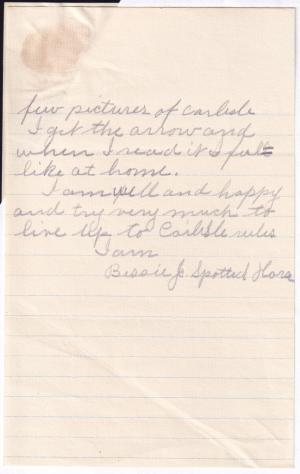 few pictures of Carlisle
I get the arrow and
when I read it I felt
like at home.
I am well and happy
and try very much to
live up to Carlisle rules
I am
Bessie J. Spotted